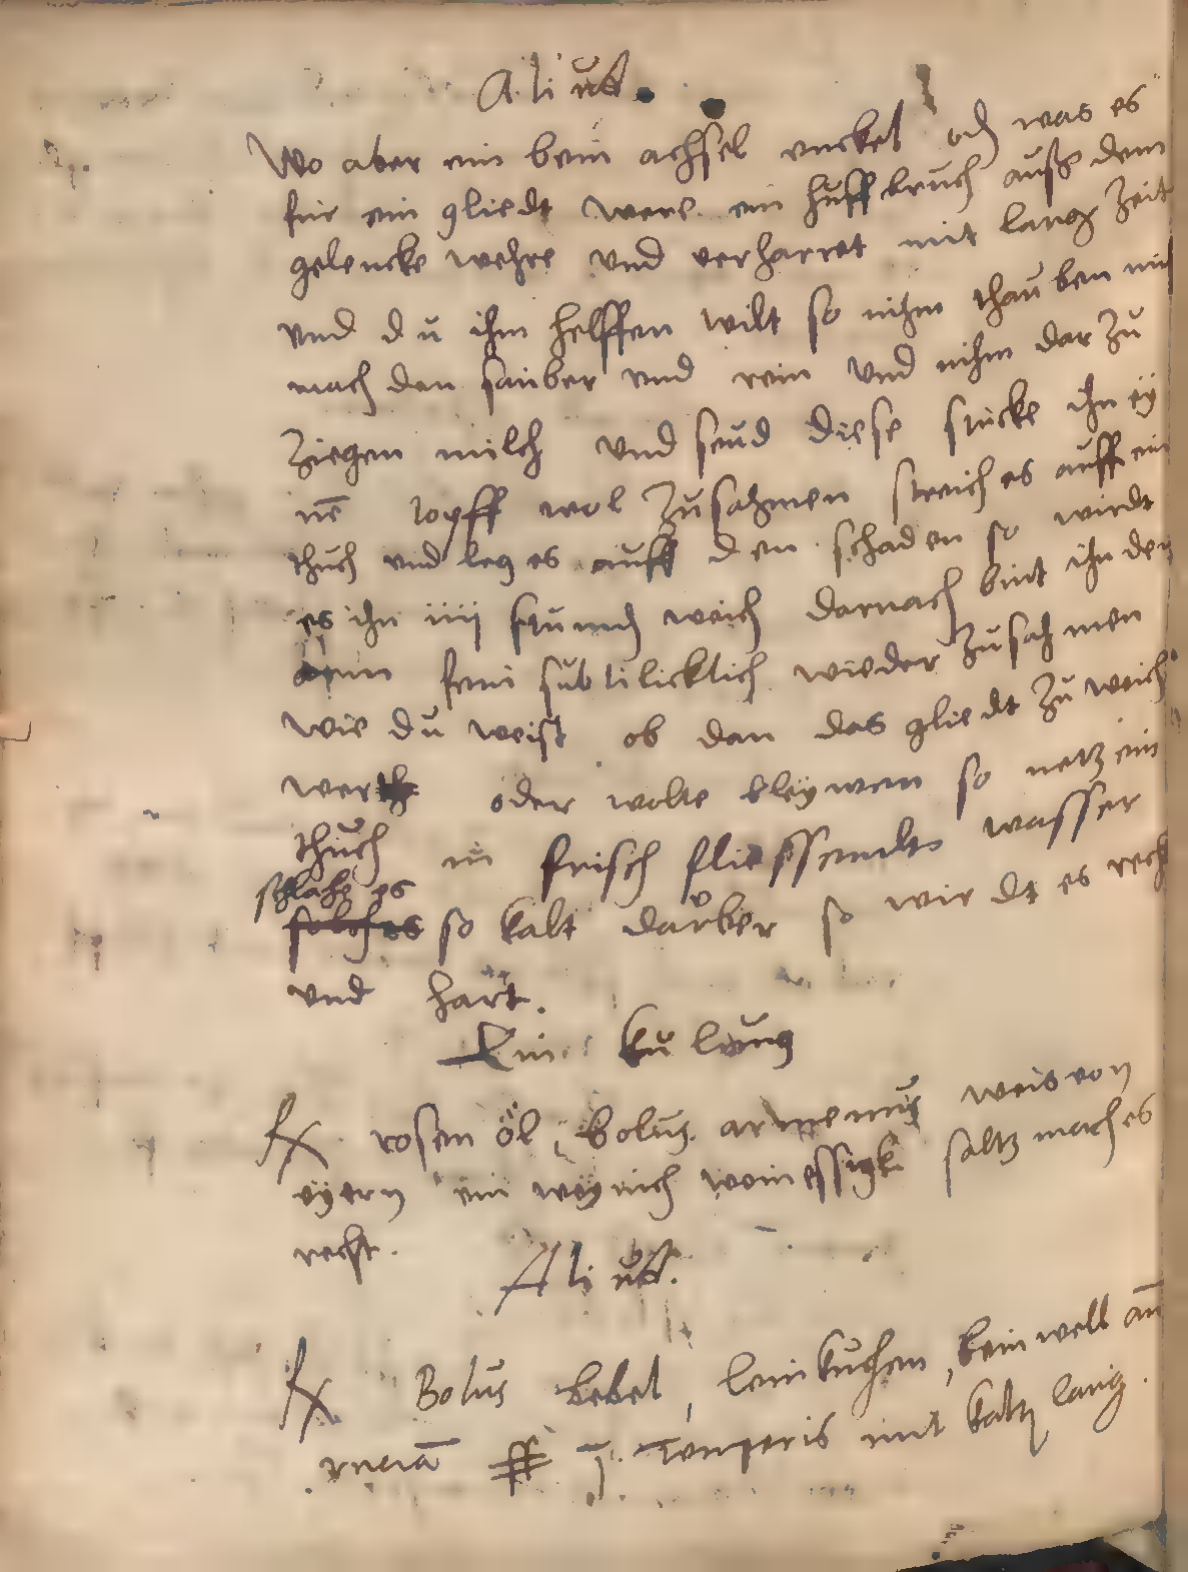 Alius.
Wo aber ein bein achsel enckel od was es
für ein gliedt were ein huffbruch auß dem
gelencke wehre und verharret mit lang zeit
Und du ihm helffen wilt so nihm thauben mist
mach den sauber und rein Und nihm dar zu
Ziegen milch Und seud diese stucke ihn ey
nē topff wol Zusahmen streich es auff ein
thuch und leg es auff den schaden so wirdt
es ihn iiij stund weich darnach bint ihn den
fein subtilicklich wieder Zusahmen
wie du weist ob dan das gliedt Zu weich
wer oder wolte bleywen so netz ein
thuch in frisch fliessendts wasser
schlahe es
so kalt darüber so wirdt es recht
und hart.
Ein kulung
Rx rosen öl, bolus armenus weis von
eyern ein weynich weinessigk saltz mach es
recht.
Alius.
Rx Bolus bebel, leinkuchen, beinwell an
ʒ j. Temperis mit kaltz laug.